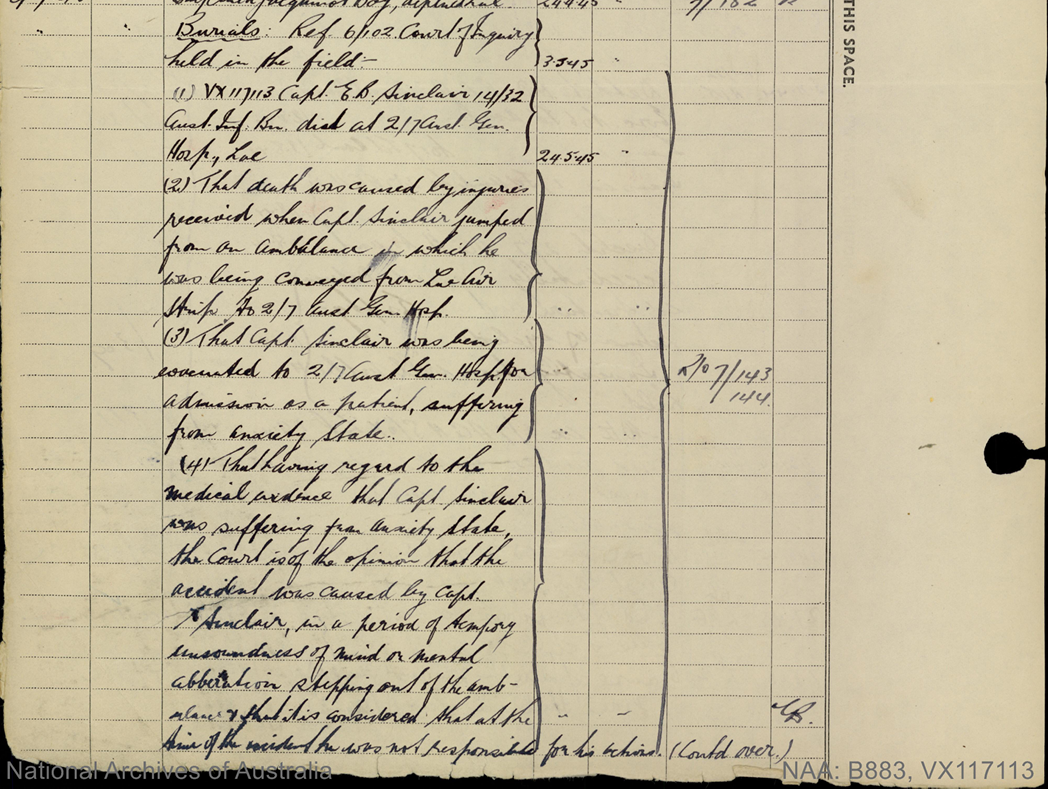 24445
Burials: Ref 6/102. Court of Inquiry
held in the field:- 3545 "
(1) VX117113 Capt. E.B. Sinclair 14/32
Aust. Inf. Bn. died at 2/7 Aust. Gen.
Hosp., Lae 24545 "
(2) That death was caused by injuries
received when Capt. Sinclair jumped
from an ambulance in which he
was being conveyed from Lae Air
Strip to 2/7 Aust Gen. Hosp. " "
(3) That Capt. Sinclair was being
evacuated to 2/7 Aust Gen. Hosp for R/O 7/143
admission as a patient, suffering 144.
from anxiety state. " "
(4) That having regard to the
medical evidence that Capt. Sinclair
was suffering from anxiety state,
the Court is of the opinion that the
accident was caused by Capt.
Sinclair, in a period of tempory
unsoundness of mind or mental
abberation stepping out of the amb-
ulance & that it is considered that at the " "
time of the incident he was not responsible for his actions. (Contd over.)
THIS SPACE.
National Archives of Australia
NAA: B883, VX117113